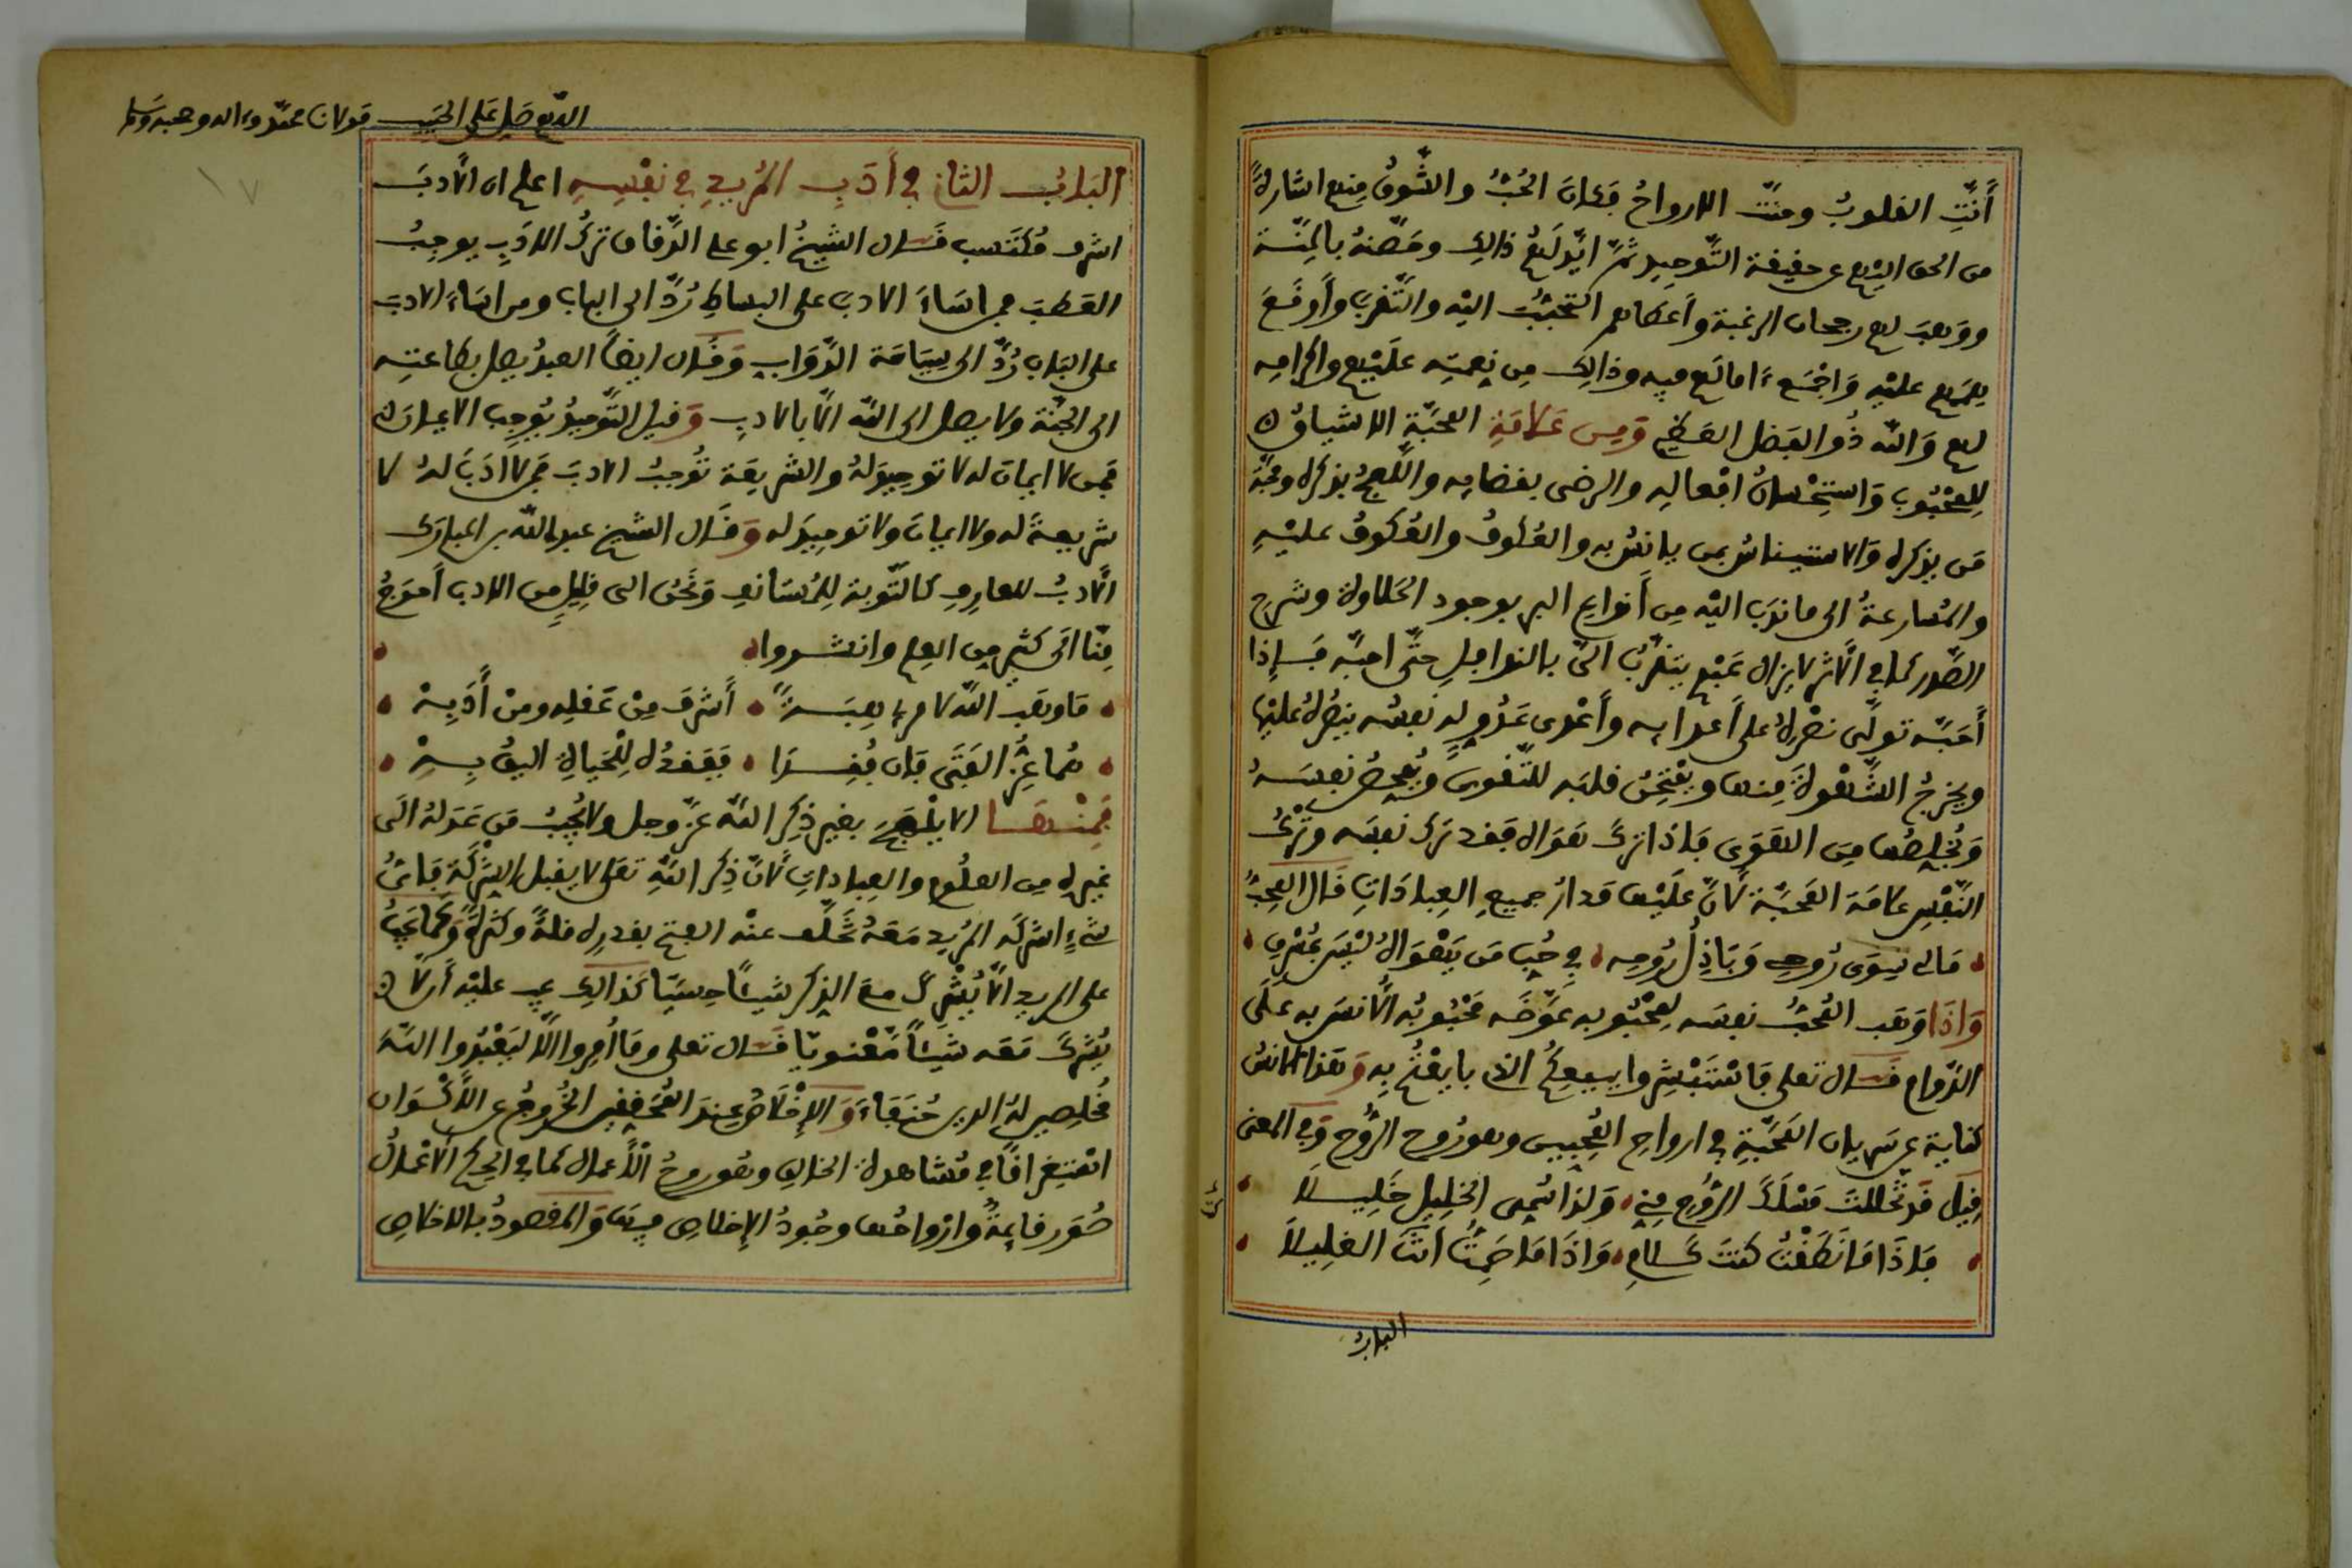 أَنَّتِ القلوبُ وحنَّت الارواحُ فكان الحُبُّ والشَّوقُ منهم اشارةً
من الحق اليهم عن حقيقة التَّوحيد ثمَّ ايَّد لهُم ذالك وخصّهُ بالمنّة
ووهبَ لهم رجحان الرغبة وأعطاهم التحبُّبَ اليْه والتَّقرب وأوقَع
عليْه وَاجْمَع ءامالهم فيه وذالك من نعمتِه عليْهم واكرامِه
لهم وَالله ذُو الفضل العظيم وَمِن عَلامَةِ المحبّةِ الاشتياقُ
لِلمحْبُوبِ وَاستِحْسانُ افْعالِه والرضى بقضايِه واللَّهجُ بذكره ومحبَّة
مَن يذكره وَالاستيناسُ بمن يانسُ به والعُكوفُ والعُكوفُ عليْهِ
والمُسارعةُ الى ما ندَبَ اليْه مِن أنواع البر بوجود الحَلاوة وشرح
الصَّدر كما في الأثر لا يزال عَبْدِى يتقرَّبُ اليَّ بالنوافِلِ حتَّى احبَّه فَإذا
أَحَبَّه تولَّى نصْرهُ على أعدايِه وأعْدى عَدُوٍّ له نفسُه ينصُرهُ عليْها
ويخرجُ الشَّهْوةَ مِنها ويمْتحِنُ قلبَه للتَّقوى نفسَهُ
وَيُخلِّصُها مِنَ الهَوَى فاذا تركَ هَوَاه فقد ترك نفسَه وتَرْكُ
النَّفْسِ علامَة المَحَبَّة لأنَّ عَلَيْها مَدارُ جميعِ العِبادَاتِ قَال المحِبُّ
مَالى سِوَى رُوحِى وَبَاذِلُ رُوحِه فِي حُبِّ مَن يَهْوَاهُ ليْسَ بمُسْرِفِ
وَاذَا وَهَب المُحِبُّ نفسَه لِمحْبُوبه عَوَّضَه مَحْبُوبُه الأُنسَ به علَى
الدَّوام قَال تعلى فَاسْتَبْشِروا ببيعِكُمُ الذى بايعْتُم بِه وَهَذا الانسُ
كناية عن سَريان المَحَبَّةِ في ارواحِ المُحِبِّين وهو رُوح الرُّوح وفي المعنى
قِيلَ قَد تَخَّللتَ مَسْلَكَ الرُّوح مِنّي وَلِذا سُمِّى الخَلِيل خَلِيلاَ
فاذَا مَا نَطَقْتُ كنتَ كَلامِى وَاذَا مَا صَمَتُّ انتَ الغلِيلاَ
الباب
اللهم صَلِّ عَلى الحَبيب مَولانا محمّد وءاله وصحبه وسلم
البَابُ الثاني في أَدَبِ المُريدِ في نفْسِهِ اعلم ان الأدبَ
اشرف مُكتَسب قَال الشيخُ ابو على الدَّقاق تركُ الادَبِ يوجبُ
العَطبَ فمن اسَاءَ الادبَ على البساطِ رُدَّ الى الباب ومن اسَاءَ الادبَ
على البَابِ رُدَّ الى سِيَاسَة الدَّوَابِ وَقَال ايضًا العبدُ يصل بطاعتِه
الى الجنَّة ولا يصل الى الله الاَّ بالادبِ وَقيل التَّوحيدُ يُوجِب الايمان
فمن لا ايمانَ له لا توحيدَ لهُ والشريعَة تُوجبُ الادبَ فمن لا ادَبَ لهُ لا
شريعةَ له ولا ايمانَ ولا توحيدَ له وَقَال الشيخ عبد الله بن المبارك
الأدبُ للعارفِ كالتَّوبة للمُستانف وَنَحْنُ الى قليلٍ من الادب أحوَجُ
مِنَّا الَى كثيرٍ مِن العِلم وانشدوا
مَا وهَبَ اللَّهُ لامرىءٍ هِبَـةً أشرفَ مِنْ عَقلِه ومنْ أَدَبِهْ
هُما الفَتَى فان فُقِدَا فَفَقْدُه لِلْحَياةِ اليقُ بِهْ
فَمِنْهَا الا يَلْهَجَ بغيرِ ذِكرِ اللَّه عزَّ وجل ولا يُحِبُّ مَن عَدَلهُ الَى
غيْره مِن العلُوم والعِباداتِ لأنَّ ذِكر اللَّهِ تعلى لا يقبل الشِّركَة فاىُّ
شىءٍ اشركَه المُريد مَعَهُ تَخَلَّف عنْه الفتح بقدرِه قلةً وكثرةً وكَما يَجبُ
على المريد الاَّ يُشْركَ معَ الذِكر شيئًا حِسّيًّا كَذالك يجب عليْه أن لا
يُشركَ مَعَه شَيْئًا مَّعْنويًّا قَال تعلى وَمَا أُمِروا إلاَّ ليَعْبُدُوا اللَّهَ
مُخلِصِين لهُ الدِين حُنَفاءَ وَالإخْلاصُ عِندَ المُحَققِين الخُروجُ عن الأكْوَان
اسْتِغراقًا في مُشاهدة الخالق وهُو روحُ الأعمال كما في الحِكم الأعْمالُ
صُوَر قايمةٌ وارْواحُها وجُودُ الإخلاصِ فيهَا وَالمقصودُ بالاخلاصِ